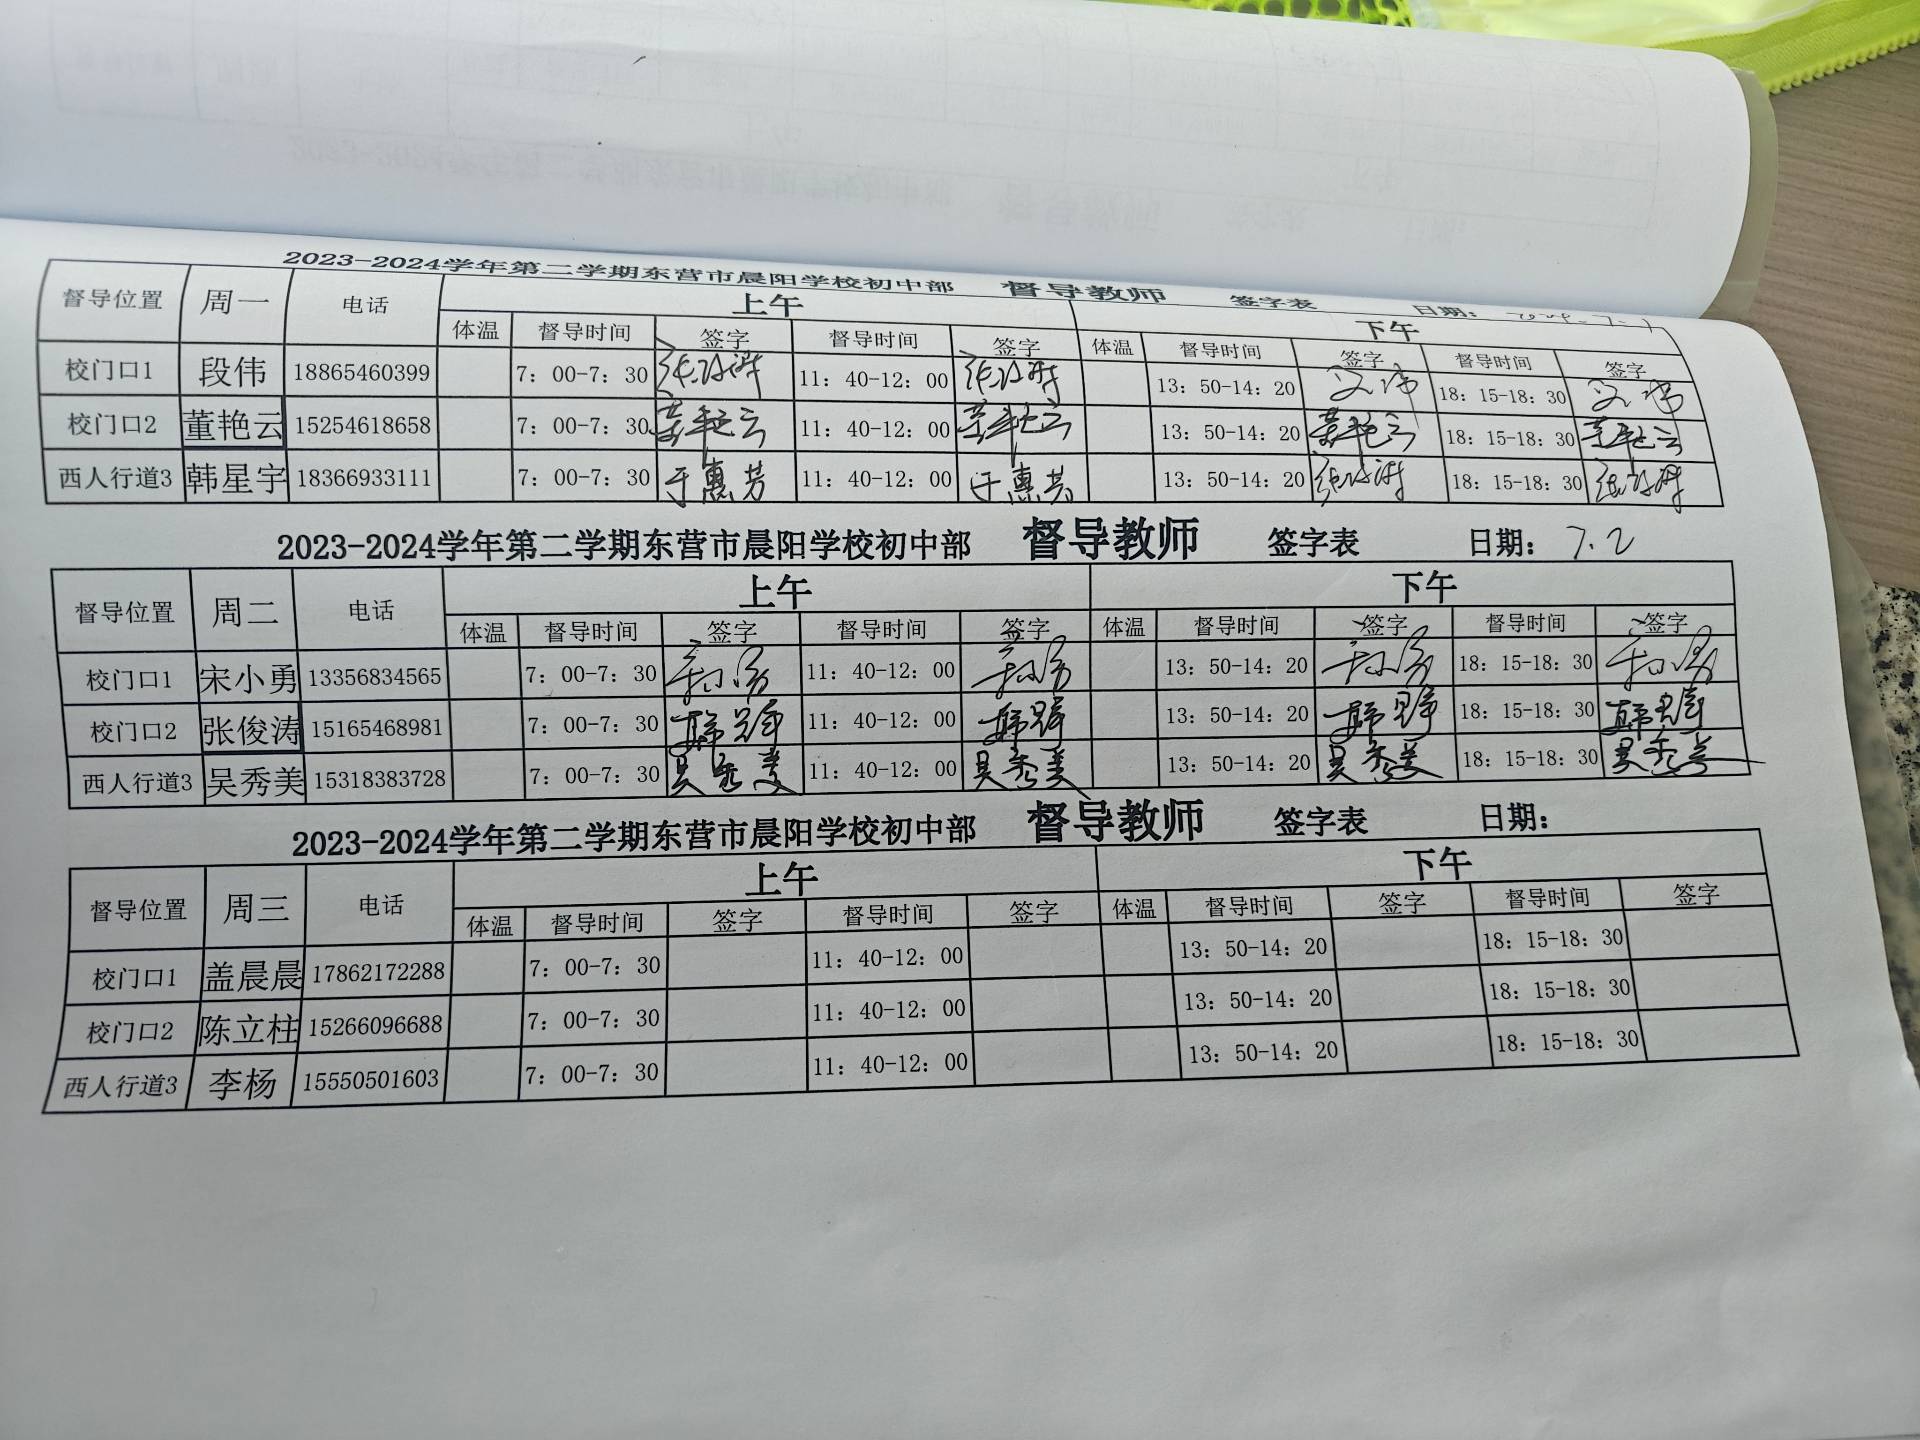 2023-2024学年第二学期东营市晨阳学校初中部 督导教师 签字表 日期:
督导位置 周一 电话 上午 下午
体温 督导时间 签字 督导时间 签字 体温 督导时间 签字 督导时间 签字
校门口1 段伟 18865460399 7：00-7：30 11：40-12：00 13：50-14：20 18：15-18：30
校门口2 董艳云 15254618658 7：00-7：30 董艳云 11：40-12：00 董艳云 13：50-14：20 董艳云 18：15-18：30 董艳云
西人行道3 韩星宇 18366933111 7：00-7：30 于惠芳 11：40-12：00 于惠芳 13：50-14：20 18：15-18：30
2023-2024学年第二学期东营市晨阳学校初中部 督导教师 签字表 日期: 7.2
督导位置 周二 电话 上午 下午
体温 督导时间 签字 督导时间 签字 体温 督导时间 签字 督导时间 签字
校门口1 宋小勇 13356834565 7：00-7：30 11：40-12：00 13：50-14：20 18：15-18：30
校门口2 张俊涛 15165468981 7：00-7：30 11：40-12：00 13：50-14：20 18：15-18：30
西人行道3 吴秀美 15318383728 7：00-7：30 吴秀美 11：40-12：00 吴秀美 13：50-14：20 吴秀美 18：15-18：30 吴秀美
2023-2024学年第二学期东营市晨阳学校初中部 督导教师 签字表 日期:
督导位置 周三 电话 上午 下午
体温 督导时间 签字 督导时间 签字 体温 督导时间 签字 督导时间 签字
校门口1 盖晨晨 17862172288 7：00-7：30 11：40-12：00 13：50-14：20 18：15-18：30
校门口2 陈立柱 15266096688 7：00-7：30 11：40-12：00 13：50-14：20 18：15-18：30
西人行道3 李杨 15550501603 7：00-7：30 11：40-12：00 13：50-14：20 18：15-18：30